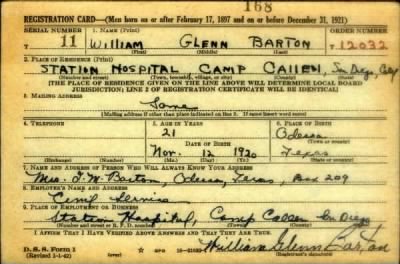 168
REGISTRATION CARD—(Men born on or after February 17, 1897 and on or before December 31, 1921)
SERIAL NUMBER 1. NAME (Print) ORDER NUMBER
T 11 William Glenn Barton T12032
(First) (Middle) (Last)
2. PLACE OF RESIDENCE (Print)
Station Hospital Camp Callen, San Diego, Cal
(Number and street) (Town, township, village, or city) (County) (State)
[THE PLACE OF RESIDENCE GIVEN ON THE LINE ABOVE WILL DETERMINE LOCAL BOARD
JURISDICTION; LINE 2 OF REGISTRATION CERTIFICATE WILL BE IDENTICAL]
3. MAILING ADDRESS
Same
[Mailing address if other than place indicated on line 2. If same insert word same]
4. TELEPHONE 5. AGE IN YEARS 6. PLACE OF BIRTH
21 Odessa
DATE OF BIRTH (Town or county)
Nov. 12 1920 Texas
(Exchange) (Number) (Mo.) (Day) (Yr.) (State or country)
7. NAME AND ADDRESS OF PERSON WHO WILL ALWAYS KNOW YOUR ADDRESS
Mrs. Barton, Odessa, Texas, Box 209
8. EMPLOYER'S NAME AND ADDRESS
Civil Service
9. PLACE OF EMPLOYMENT OR BUSINESS
Station Hospital, Camp Callen San Diego
(Number and street or R. F. D. number) (Town) (County) (State)
I AFFIRM THAT I HAVE VERIFIED ABOVE ANSWERS AND THAT THEY ARE TRUE.
D. S. S. Form 1
(Revised 1-1-42) GPO William Glenn Barton
(Registrant's signature)